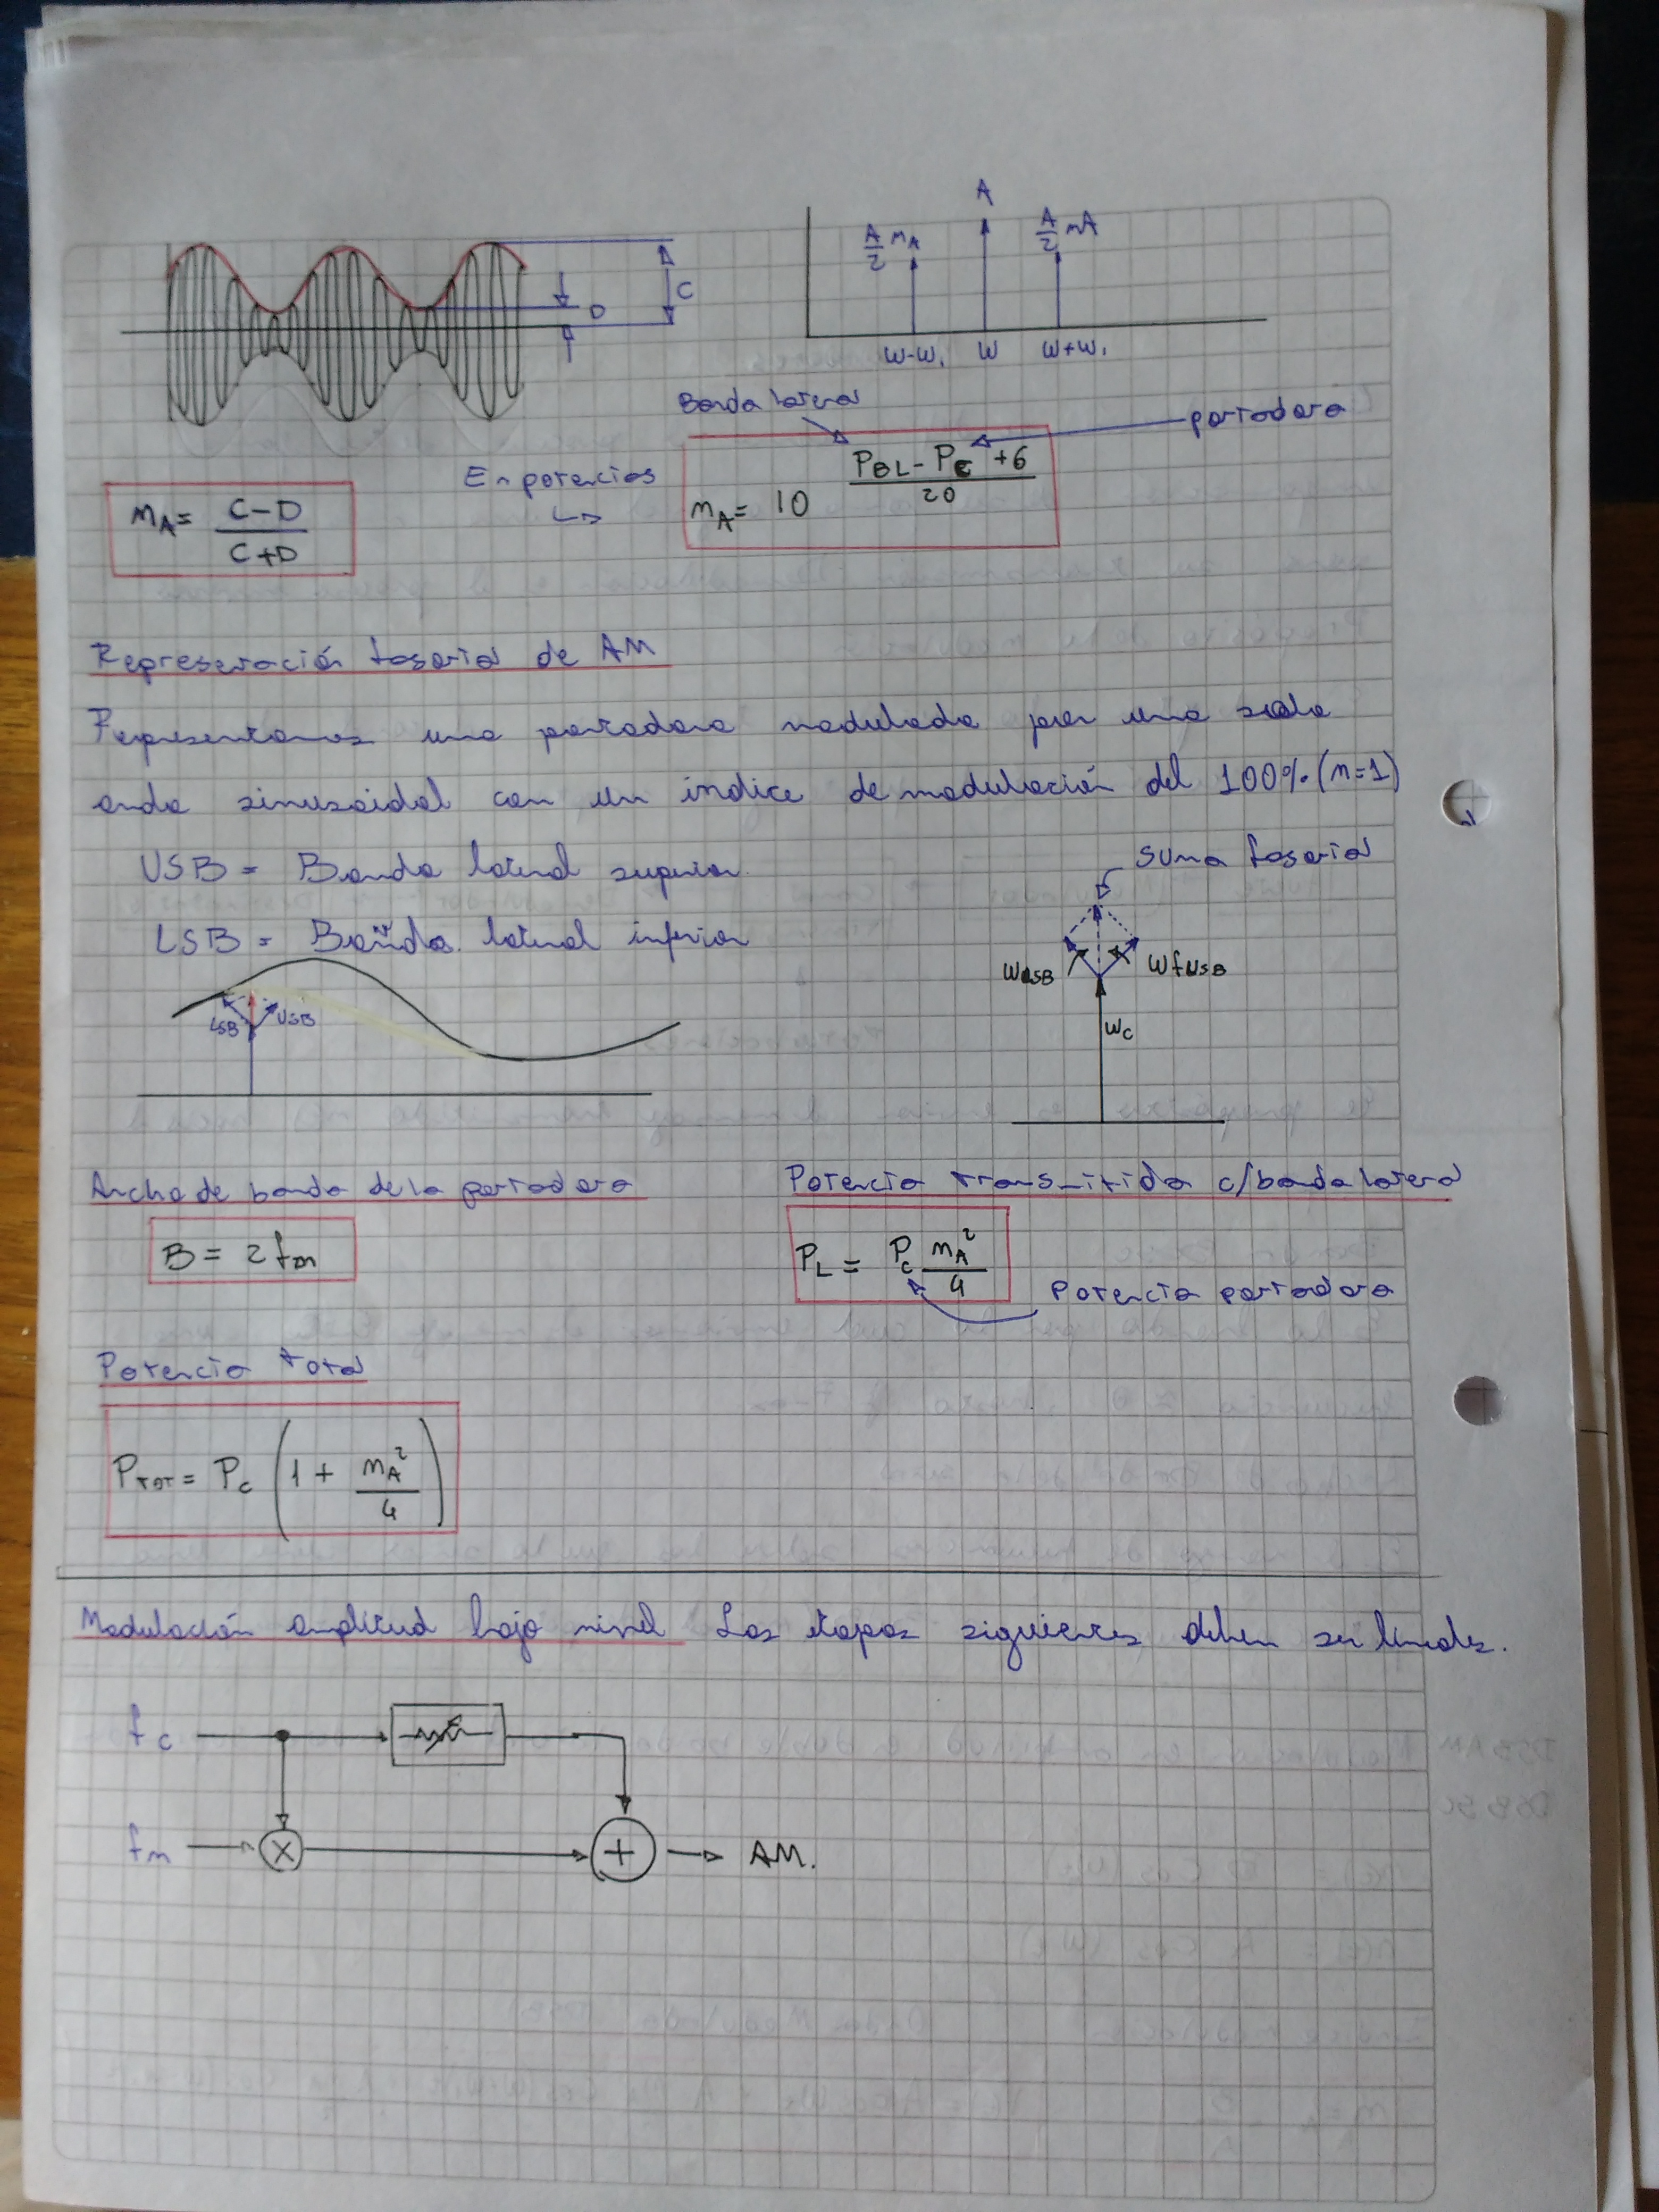 A
A/2 mA
A/2 mA
C
D
W-W₁ W W+W₁
Banda lateral
portadora
En potencias
mA = (C-D)/(C+D)
mA = 10^((PBL - PC +6)/20)
Represetación fasorial de AM
Representamos una portadora modulada por una sola
onda sinusoidal con un indice de modulación del 100% (m=1)
USB = Banda lateral superior
LSB = Banda lateral inferior
suma fasorial
WLSB
WfUSB
LSB USB
Wc
Ancho de banda de la portadora
Potencia transmitida c/banda lateral
B = 2fm
PL = Pc mA²/4
Potencia portadora
Potencia total
PTOT = Pc (1 + mA²/4)
Modulación amplitud bajo nivel Las etapas siguientes deben ser lineales.
fc
fm
X
+
AM.